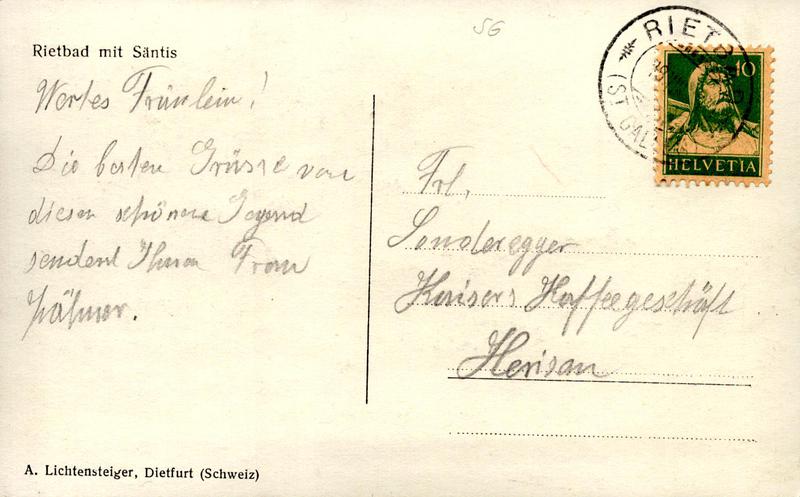 SG
RIETBAD
(ST. GALL
10
HELVETIA
Rietbad mit Säntis
Wertes Fräulein!
Die besten Grüsse von
dieser schönen Gegend
sendent Ihnen Frau
Frl.
Sonderegger
Kaisers Kaffeegeschäft
Herisau
A. Lichtensteiger, Dietfurt (Schweiz)